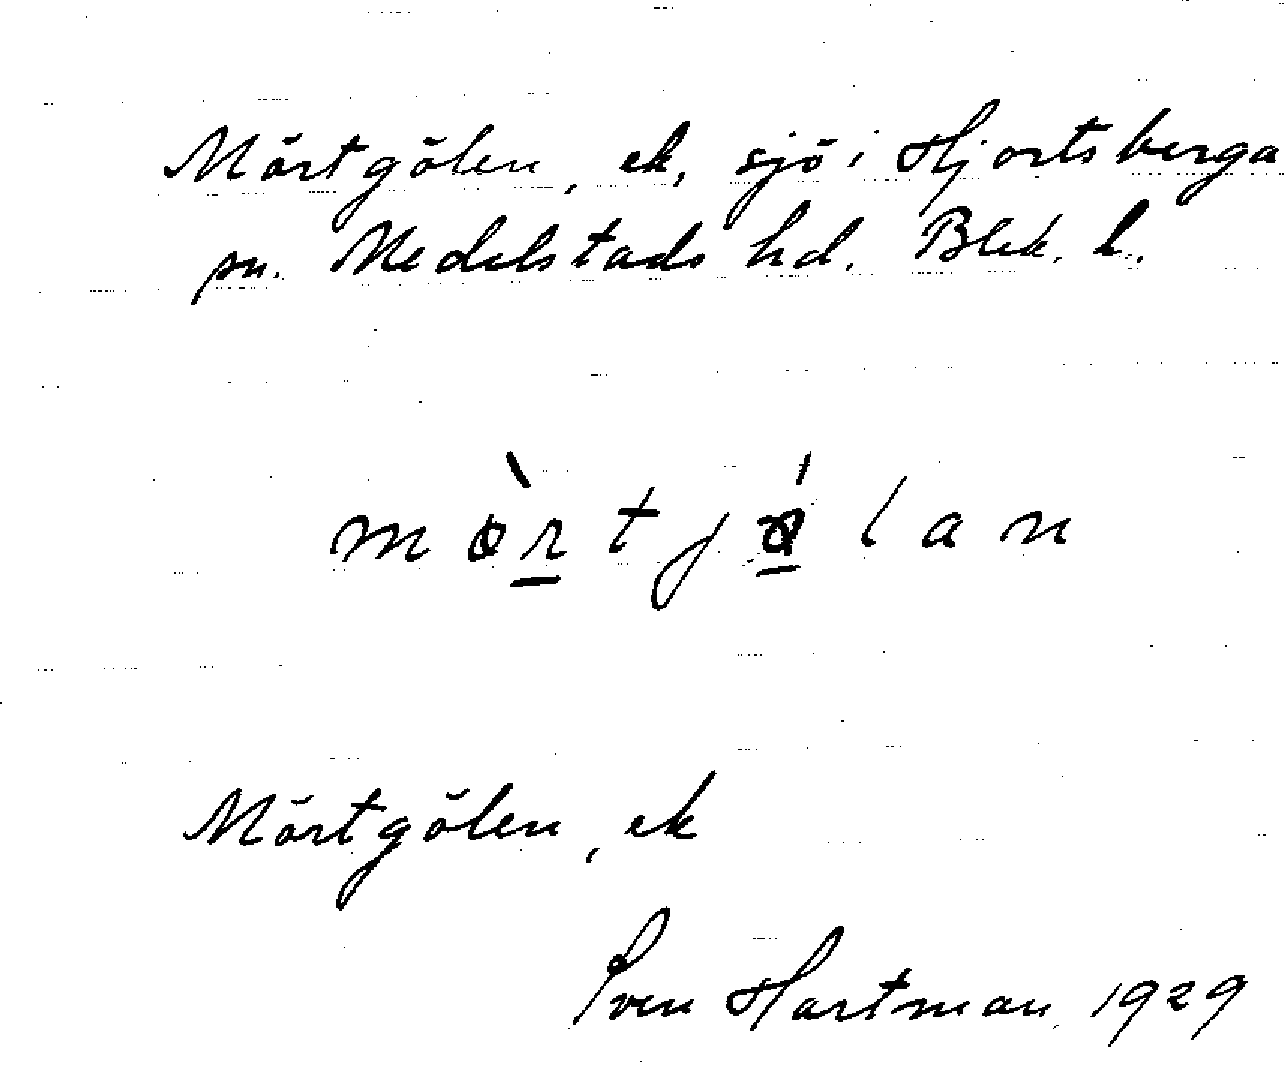 Mörtgölen, ek, sjö i Hjortsberga
sn. Medelstads hd. Blek. l.
mörtjölan
Mörtgölen, ek
Sven Hartman 1929